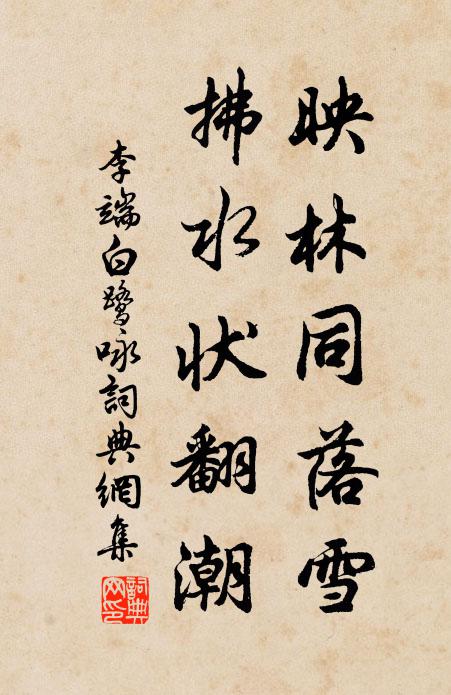 映林同落雪
拂水状翻潮
李端白鹭咏詞典網集
詞典网印